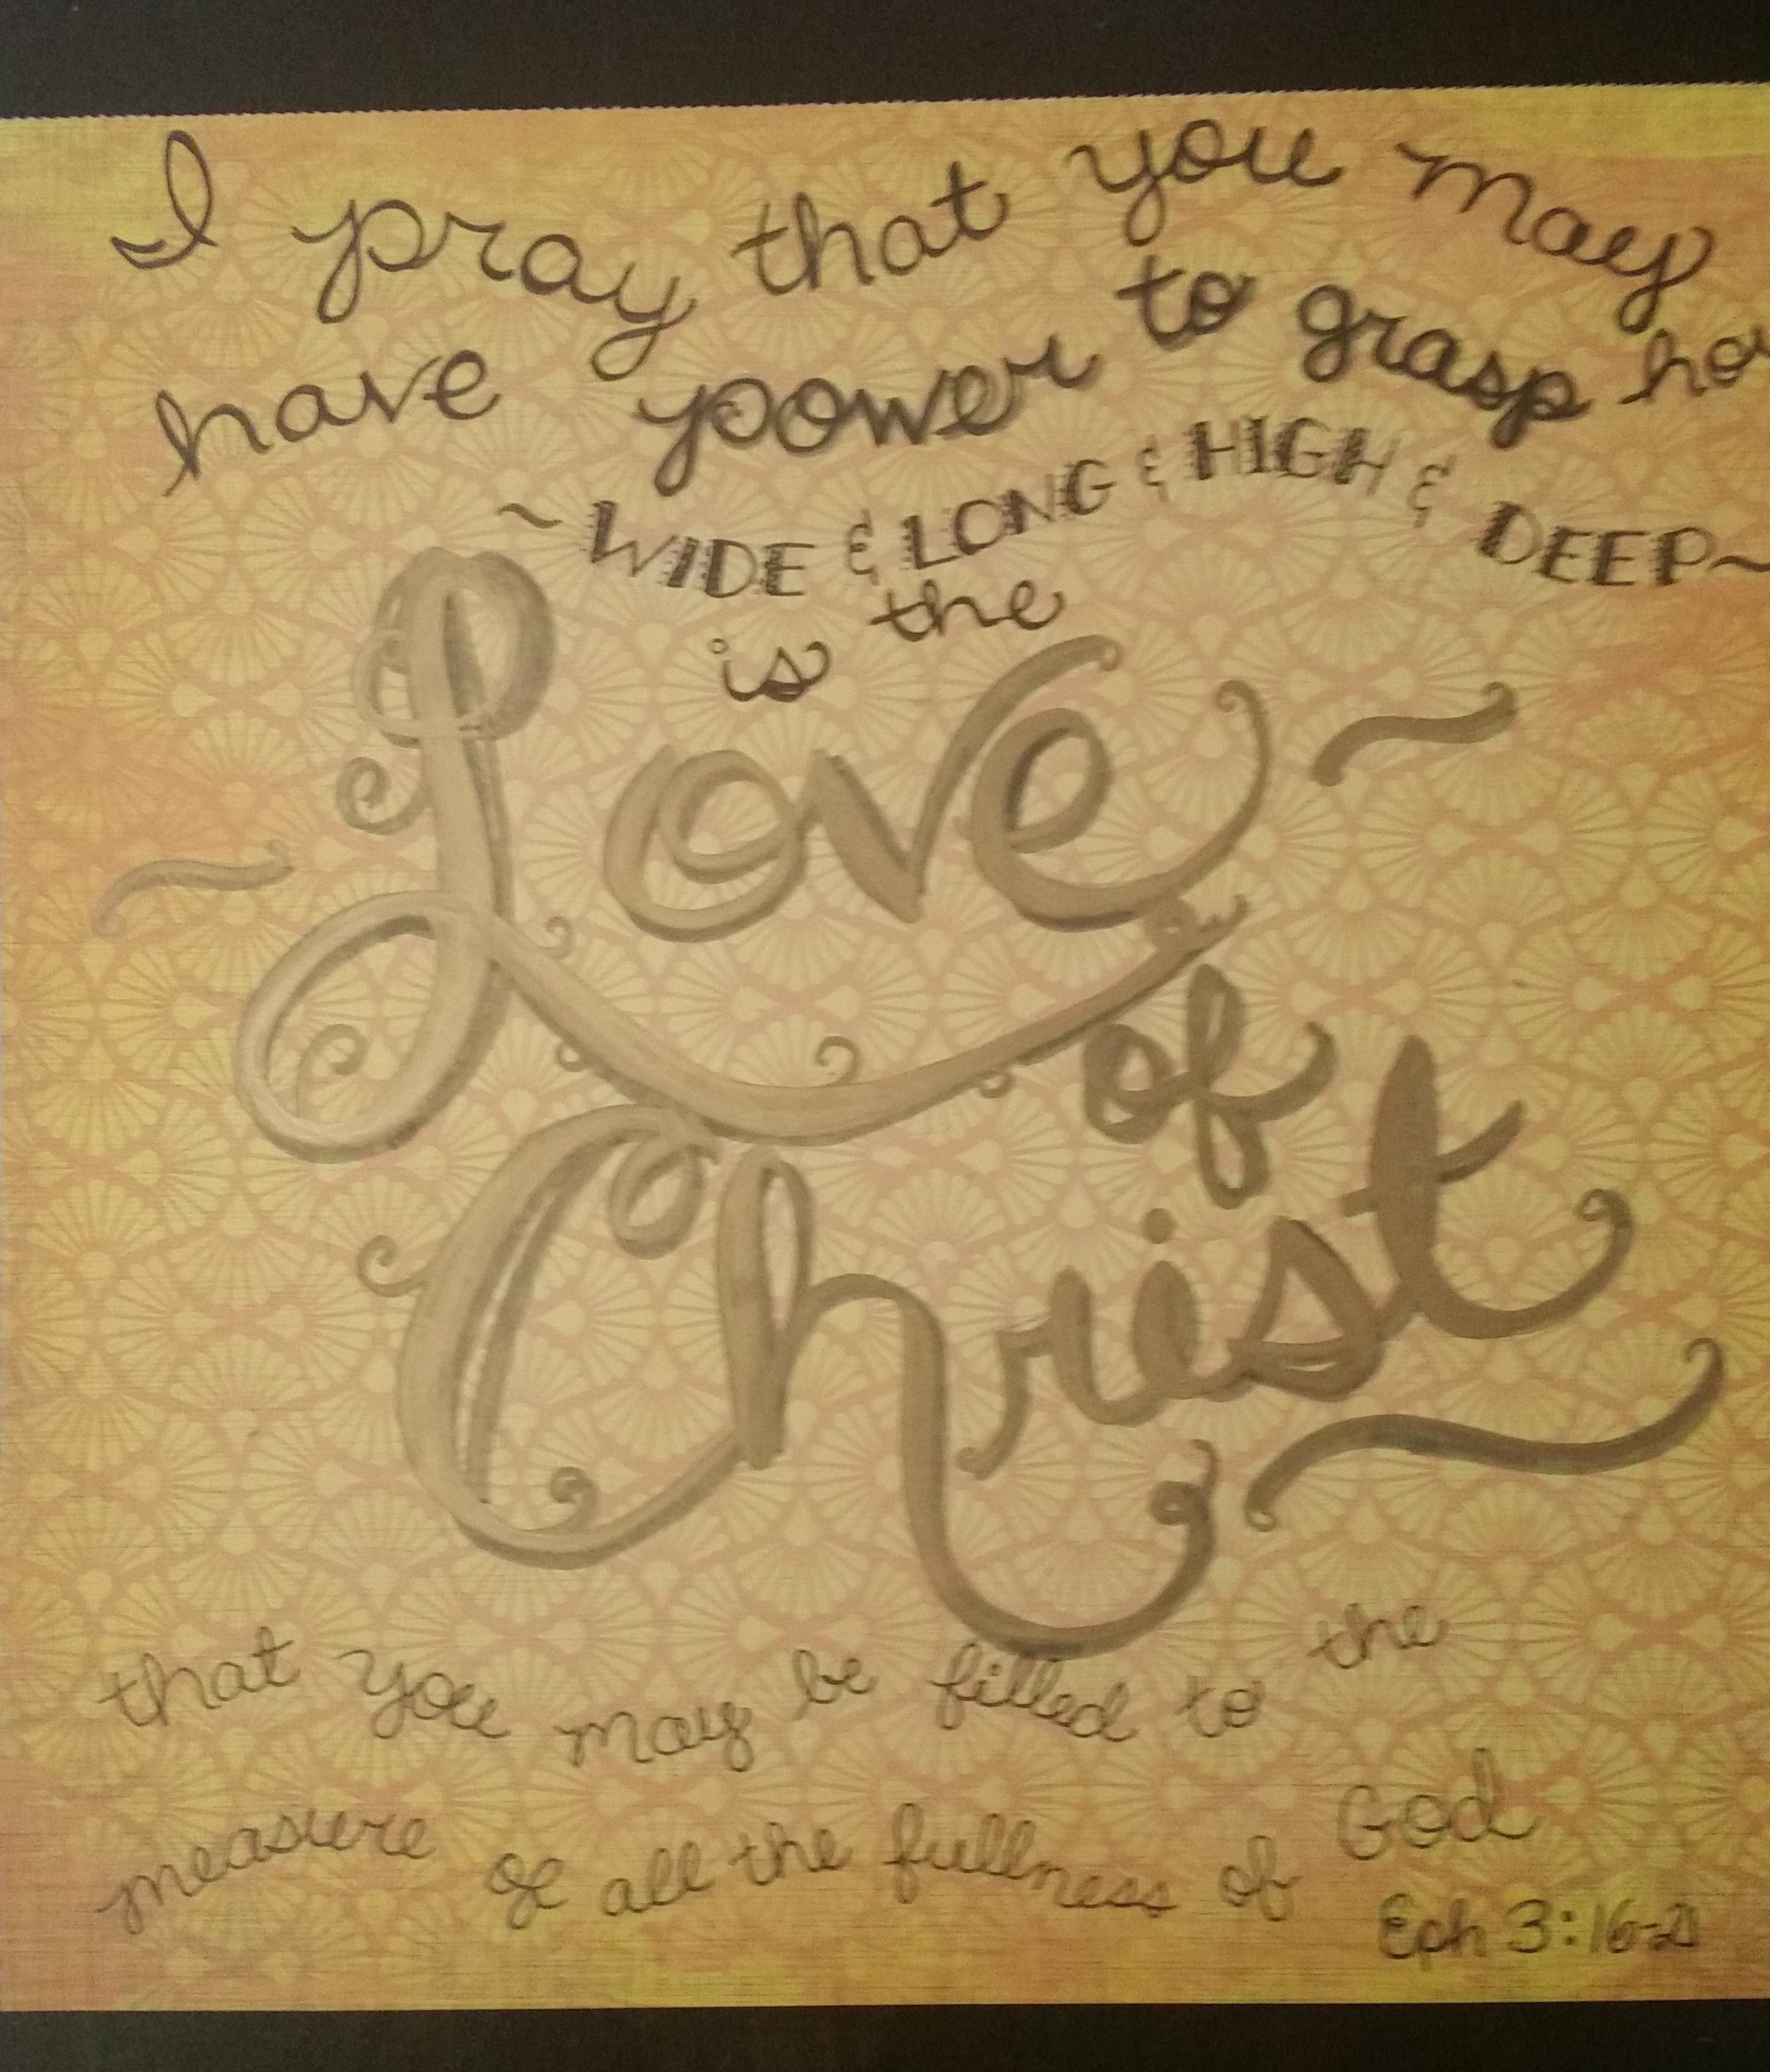 I pray that you may
have power to grasp ho
~WIDE & LONG & HIGH & DEEP~
is the
Love
of
Christ
that you may be filled to the
measure of all the fullness of God
Eph 3:16-21